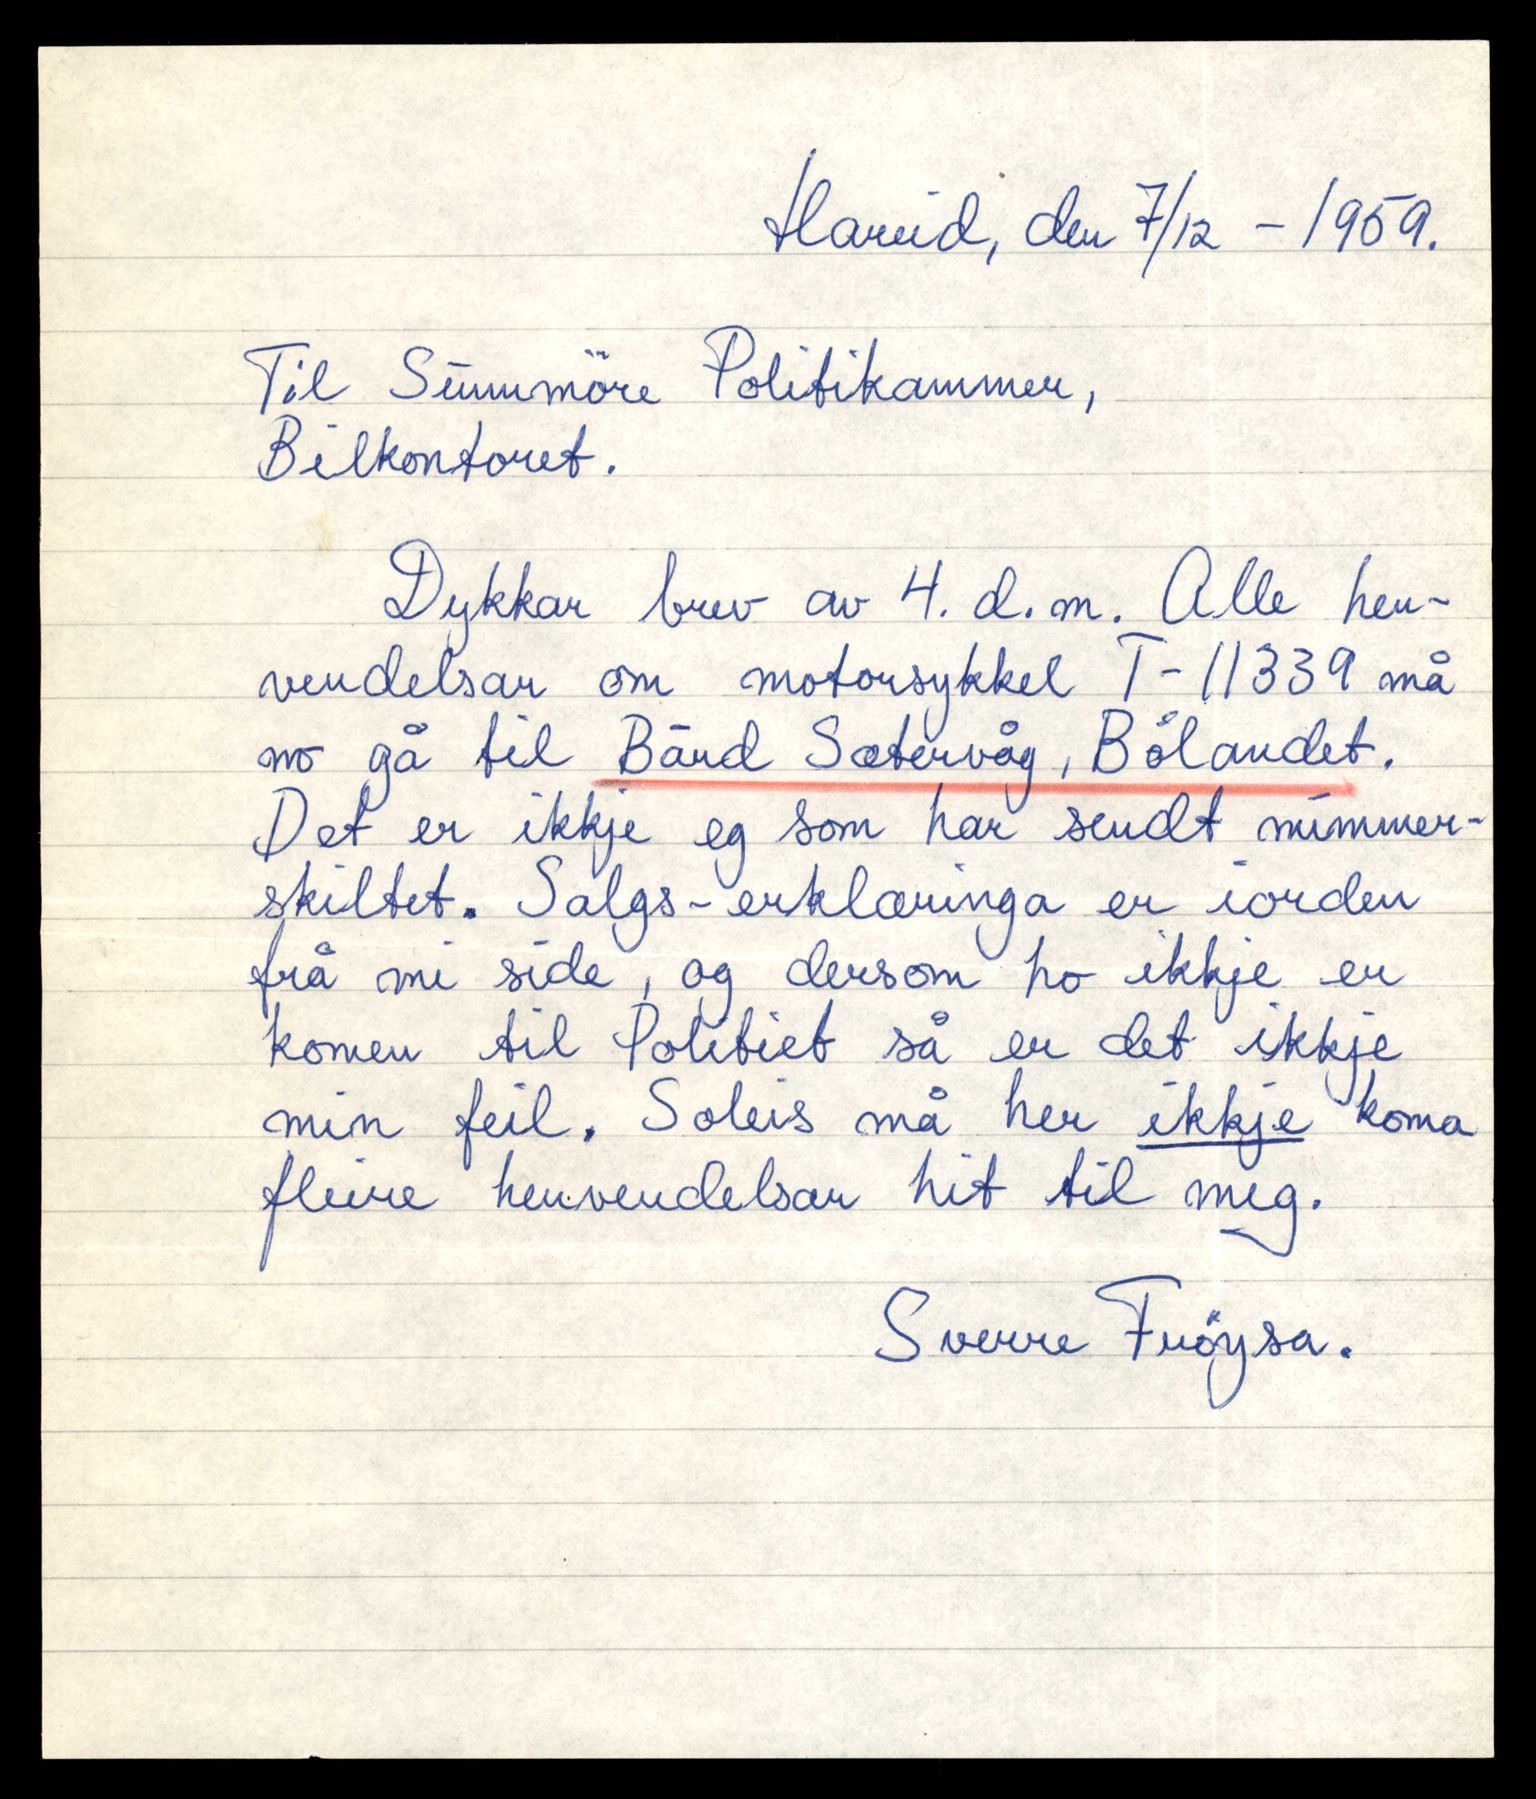 Hareid, den 7/12 - 1959.
Til Sunnmöre Politikammer,
Bilkontoret.
Dykkar brev av 4. d.m. Alle hen-
vendelsar om motorsykkel T-11339 må
no gå til Bård Sætervåg, Bölandet.
Det er ikkje eg som har sendt nummer-
skiltet. Salgs-erklæringa er iorden
frå mi side, og dersom ho ikkje er
komen til Politiet så er det ikkje
min feil. Soleis må her ikkje koma
fleire henvendelsar hit til meg.
Sverre Fröysa.